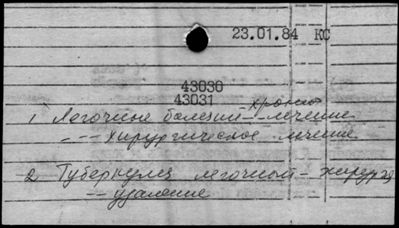 23.01.84 КС
43030
43031
хронич
1 Легочные болезни — лечение
— " — хирургическое лечение
2 Туберкулез легочный — хирург
— удаление